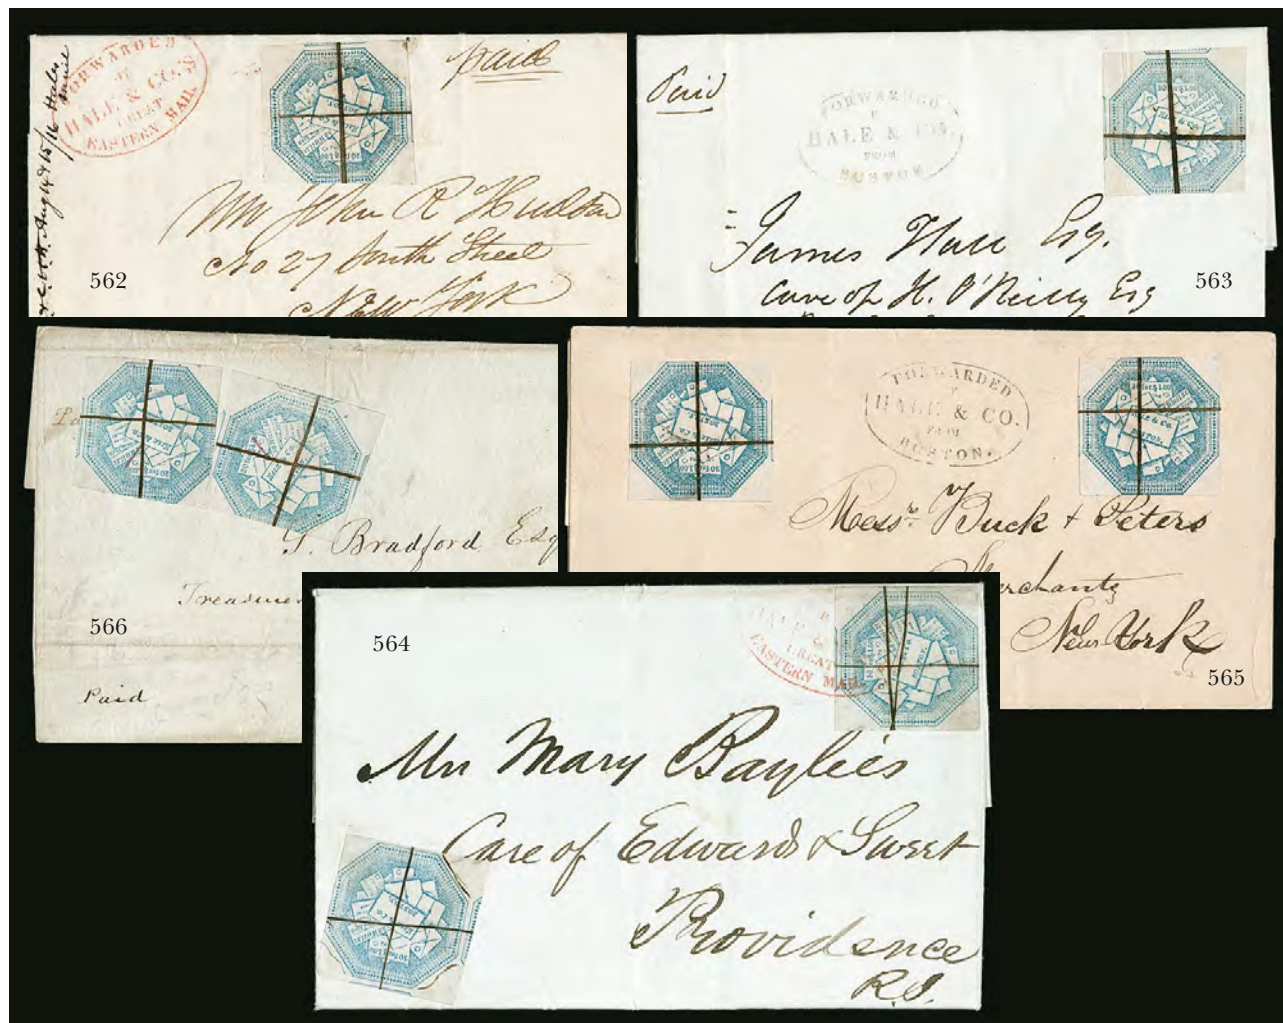 FORWARDED
BY
HALE & CO.'S
GREAT
EASTERN MAIL.
paid
Mr John R Hudson
No 27 South Street
New York
562
Paid
FORWARDED
HALE & CO.
FROM
BOSTON
James Hall Esq.
Care of H. O'Reilly Esq
563
G. Bradford Esq
Treasurer
566
Paid
FORWARDED
BY
HALE & CO.
FROM
BOSTON
HALE & Co.
BOSTON.
Messrs Buck & Peters
Merchants
New York
565
564
HALE &
GREAT
EASTERN MAIL
Mrs Mary Baylies
Care of Edward & Sweet
Providence
R.I.